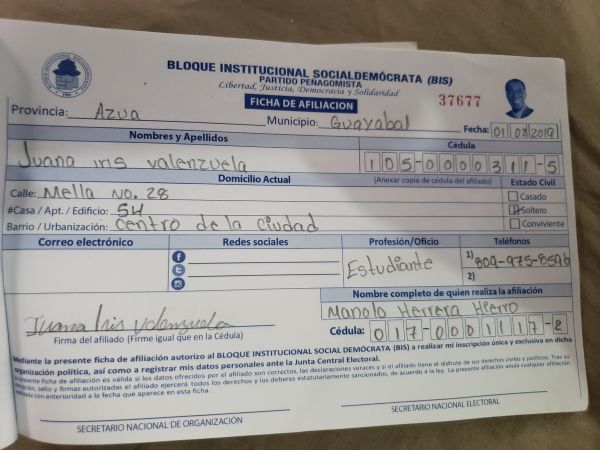 BLOQUE INSTITUCIONAL SOCIALDEMÓCRATA (BIS)
PARTIDO PEÑAGOMISTA
Libertad, Justicia, Democracia y Solidaridad
FICHA DE AFILIACIÓN
37677
Provincia: Azua Municipio: Guayabal Fecha: 01 08 2019
Nombres y Apellidos Cédula
Juana iris valenzuela 105-0000311-5
Domicilio Actual (Anexar copia de cédula del afiliado) Estado Civil
Calle: Mella No. 28 Casado
#Casa / Apt. / Edificio: 54 Soltero
Barrio / Urbanización: centro de la ciudad Conviviente
Correo electrónico Redes sociales Profesión/Oficio Teléfonos
Estudiante 1) 809-975-8596
2)
Nombre completo de quien realiza la afiliación
Manolo Herrera Hierro
Juana Iris Valenzuela
Firma del afiliado (Firme igual que en la Cédula) Cédula: 017-0001117-2
Mediante la presente ficha de afiliación autorizo al BLOQUE INSTITUCIONAL SOCIAL DEMÓCRATA (BIS) a realizar mi inscripción única y exclusiva en dicha
organización política, así como a registrar mis datos personales ante la Junta Central Electoral.
La presente ficha de afiliación es válida si los datos ofrecidos por el afiliado son correctos, las declaraciones veraces y si el afiliado tiene el disfrute de sus derechos civiles y políticos. Tras su
sello y firmas autorizadas el afiliado ejercerá todos los derechos y los deberes estatutariamente sancionados, de acuerdo a la ley. La presente afiliación anula cualquier afiliación
realizada con anterioridad a la fecha que aparece en esta ficha.
SECRETARIO NACIONAL DE ORGANIZACIÓN SECRETARIO NACIONAL ELECTORAL